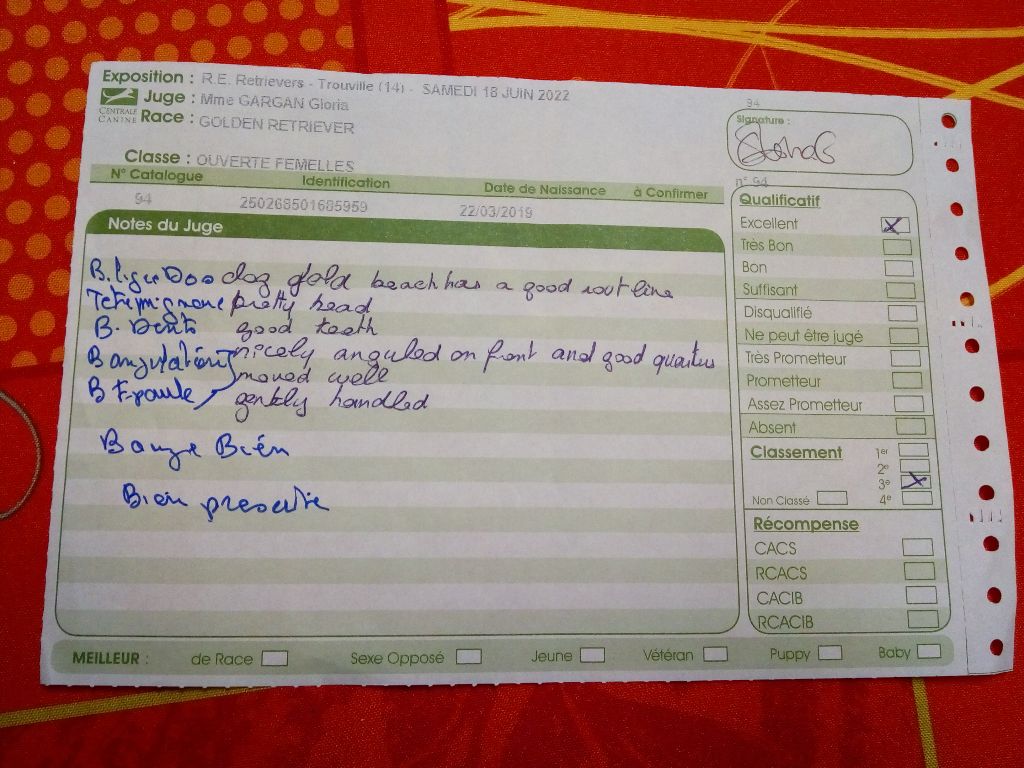 Exposition : R.E. Retrievers - Trouville (14) - SAMEDI 18 JUIN 2022
CENTRALE CANINE
Juge : Mme GARGAN Gloria
Race : GOLDEN RETRIEVER
Classe : OUVERTE FEMELLES
N° Catalogue Identification Date de Naissance à Confirmer
94 250268501685959 22/03/2019
94
Signature :
n° 94
Notes du Juge
B. ligne Dos dog gold has a good out line
Tete mignone pretty head
B. Dents good teeth
B angulation nicely anguled on front and good quarters
moved well
B Epaule gently handled
Bouge Bien
Bien presentée
Qualificatif
Excellent X
Très Bon
Bon
Suffisant
Disqualifié
Ne peut être jugé
Très Prometteur
Prometteur
Assez Prometteur
Absent
Classement 1er
2e
3e X
Non Classé 4e
Récompense
CACS
RCACS
CACIB
RCACIB
MEILLEUR : de Race Sexe Opposé Jeune Vétéran Puppy Baby